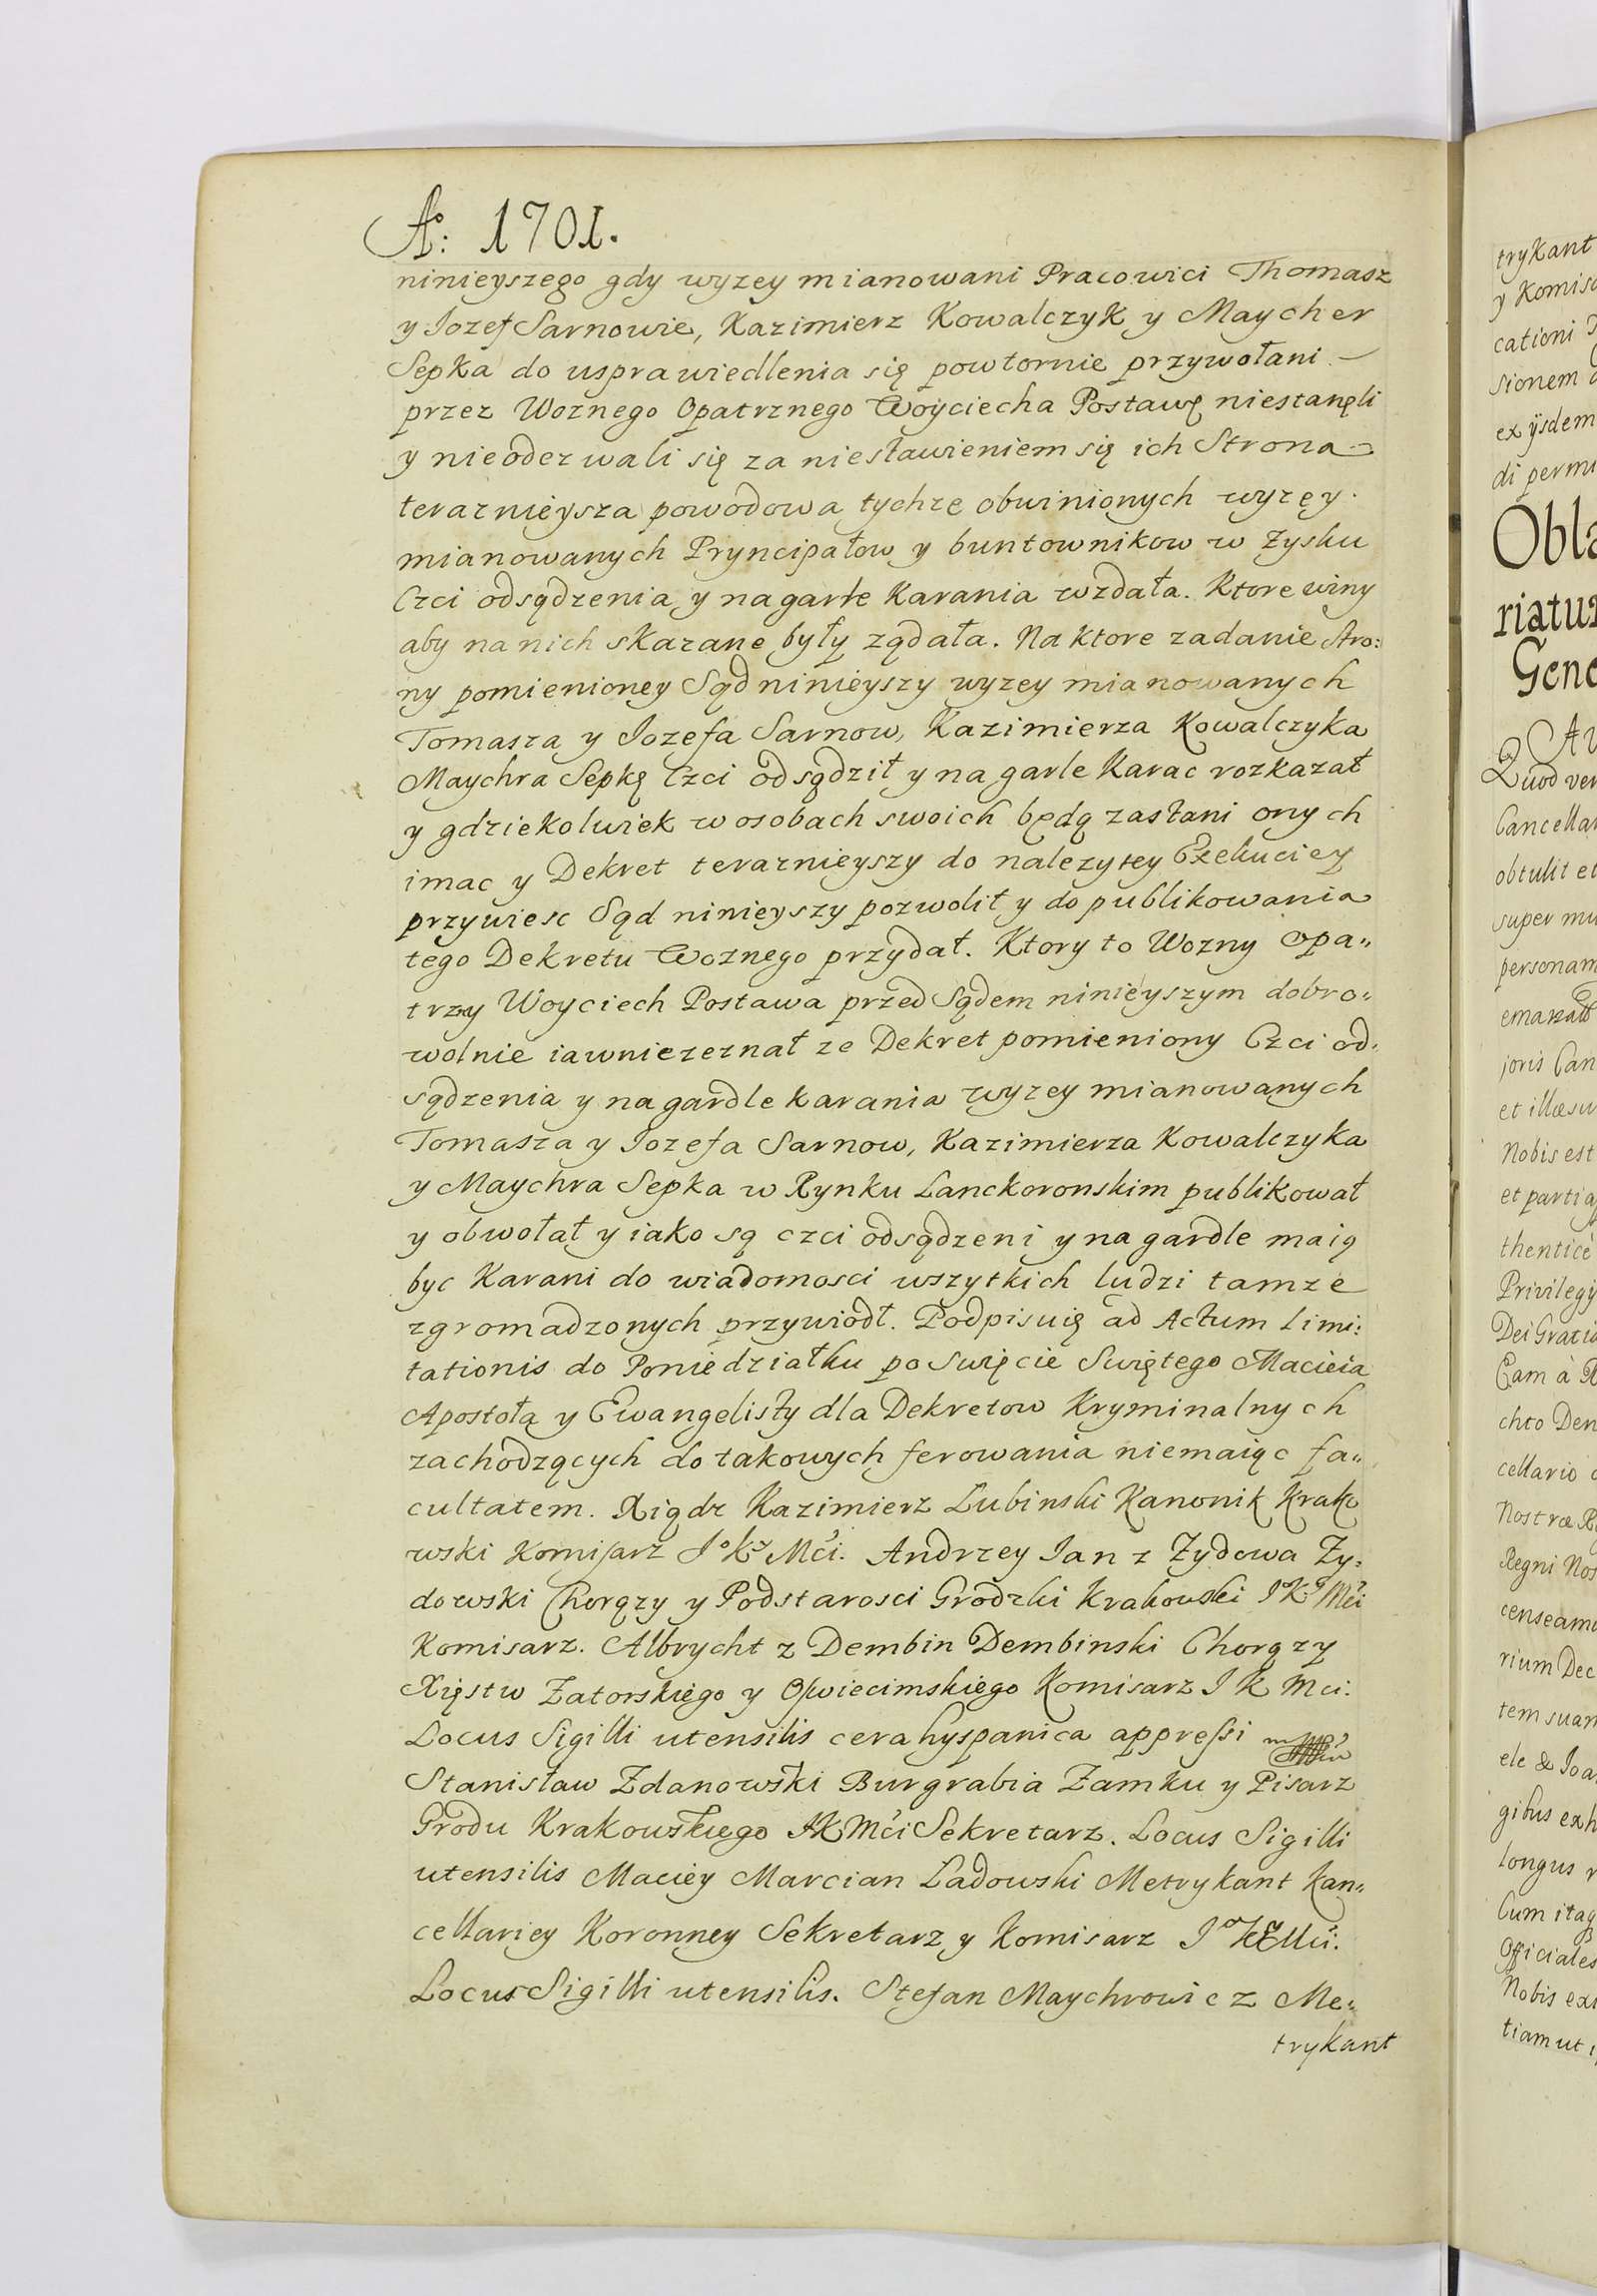 Aº: 1701.
ninieyszego gdy wyzey mianowani Pracowici Thomasz
y Iozef Sarnowie, Kazimierz Kowalczyk y Maycher
Sepka do usprawiedlenia się powtornie przywołani
przez Woznego Opatrznego Woyciecha Postawę niestanęli
y nieoderwali się za niestawieniem się ich Strona
teraznieysza powodowa tychze obwinionych wyzey
mianowanych Pryncipałow y buntownikow w Zysku
Czci odsądzenia y na garłe Karania wzdała. Ktore winy
aby na nich skazane były ządała. Na ktore zadanie Stro:
ny pomienioney Sąd ninieyszy wyzey mianowanych
Tomasza y Iozefa Sarnow, Kazimierza Kowalczyka
Maychra Sepkę Czci odsądził y na garle Karac rozkazał
y gdziekolwiek w osobach swoich będą zastani onych
imac y Dekret teraznieyszy do nalezytey Exekuciey
przywiesc Sąd ninieyszy pozwolił y do publikowania
tego Dekretu Woznego przydał. Ktory to Wozny Opa„
trzny Woyciech Postawa przed Sądem ninieyszym dobro„
wolnie iawnie zeznał ze Dekret pomieniony Czci od„
sądzenia y na gardle karania wyzey mianowanych
Tomasza y Iozefa Sarnow, Kazimierza Kowalczyka
y Maychra Sepka w Rynku Lanckoronskim publikował
y obwołał y iako są czci odsądzeni y na gardle maią
byc Karani do wiadomosci wszytkich ludzi tamze
zgromadzonych przywiodł. Podpisuię ad Actum limi:
tationis do Poniedziałku po Swięcie Swiętego Macieia
Apostoła y Ewangelisty dla Dekretow Kryminalnych
zachodzących do takowych ferowania niemaiąc fa„
cultatem. Xiądz Kazimierz Lubinski Kanonik Krako
wski Komisarz Iº Kº Mći. Andrzey Ian z Zydowa Zy„
dowski Chorązy y Podstarosci Grodzki Krakowski I K Mći
Komisarz. Albrycht z Dembin Dembinski Chorązy
Xięstw Zatorskiego y Oswiecimskiego Komisarz I K Mci.
Locus Sigilli utensilis cera hyspanica appressi
Stanisław Zdanowski Burgrabia Zamku y Pisarz
Grodu Krakowskiego IK Mći Sekretarz. Locus Sigilli
utensilis Maciey Marcian Ladowski Metrykant Kan„
cellariey Koronney Sekretarz y Komisarz I K Mći.
Locus Sigilli utensilis. Stefan Maychrowicz Me„
trykant
trykant
y Komisa
cationi
sionem
ex ijsdem
di permi
Obla
riatur
Gene
Quod ver
Cancellar
obtulit et
super mu
personam
joris Can
et illæsu
Nobis est
et partia
thenticè
Privilegy
Dei Gratia
Eam à
chto Den
cellario
Nostræ R
Regni Nos
censeamu
rium Dec
tem suam
ele & Ioa
gibus exh
longus
Cum itaq
Officiales
Nobis exi
tiam ut